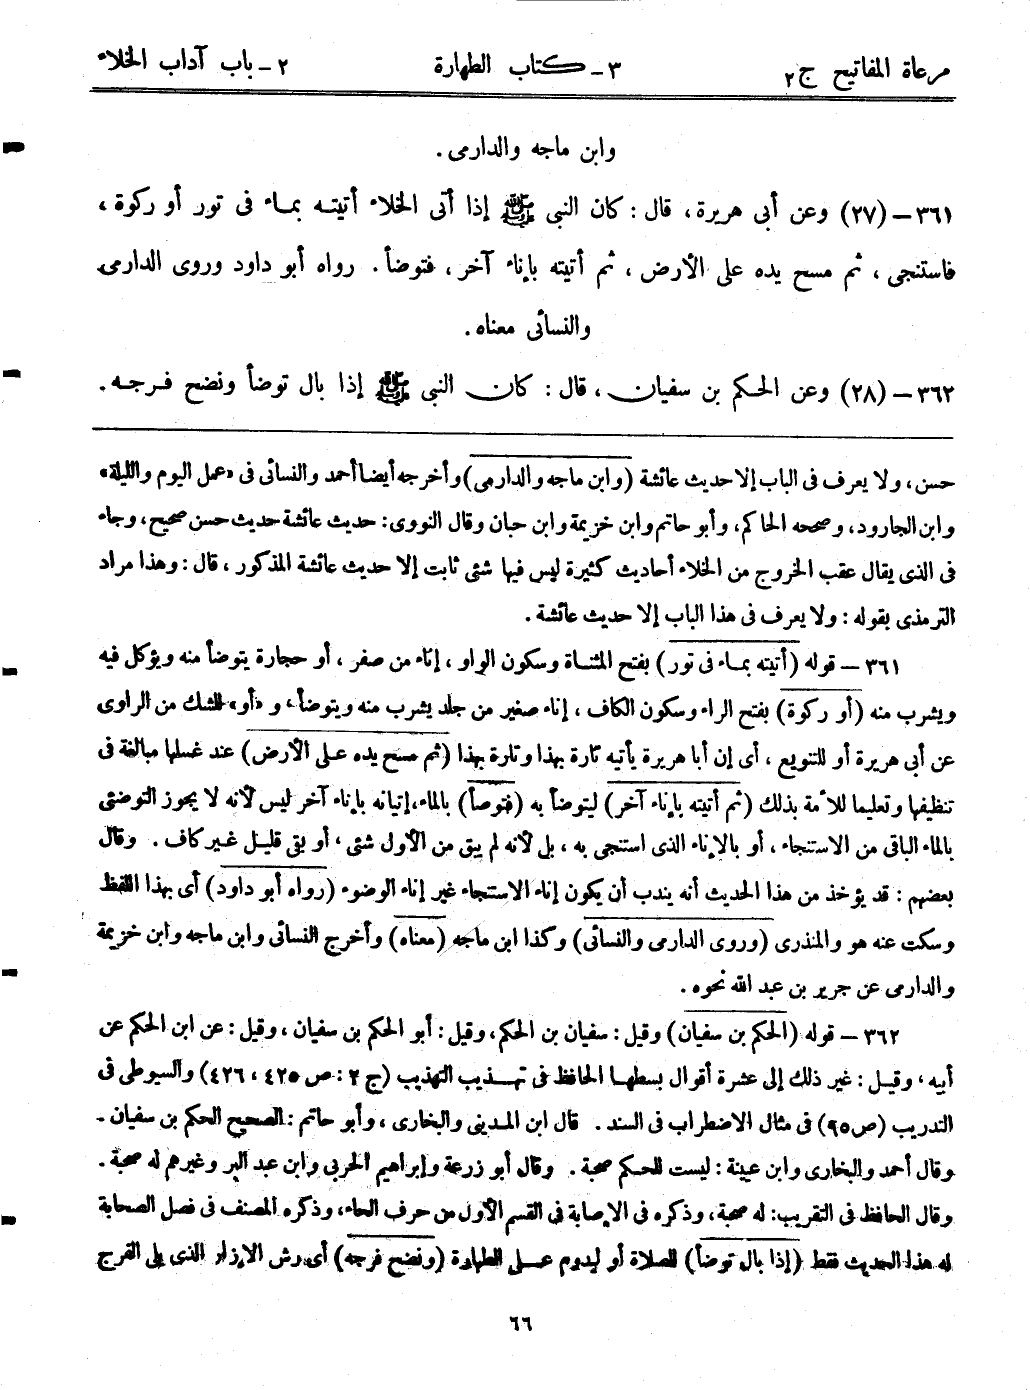 مرعاة المفاتيح ج٢ ٣ - كتاب الطهارة ٢ - باب آداب الخلاء
وابن ماجه والدارمى.
٣٦١ - (٢٧) وعن أبى هريرة، قال: كان النبى ﷺ إذا أتى الخلاء أتيته بماء فى تور أو ركوة،
فاستنجى، ثم مسح يده على الأرض، ثم أتيته بإناء آخر، فتوضأ. رواه أبو داود وروى الدارمى
والنسائى معناه.
٣٦٢ - (٢٨) وعن الحكم بن سفيان، قال: كان النبى ﷺ إذا بال توضأ ونضح فرجه.
حسن، ولا يعرف فى الباب إلا حديث عائشة (وابن ماجه والدارمى) وأخرجه أيضا أحمد والنسائى فى «عمل اليوم والليلة»
وابن الجارود، وصححه الحاكم، وأبو حاتم وابن خزيمة وابن حبان وقال النووى: حديث عائشة حديث حسن صحيح، وجاء
فى الذى يقال عقب الخروج من الخلاء أحاديث كثيرة ليس فيها شئى ثابت إلا حديث عائشة المذكور، قال: وهذا مراد
الترمذى بقوله: ولا يعرف فى هذا الباب إلا حديث عائشة.
٣٦١ - قوله (أتيته بماء فى تور) بفتح المثناة وسكون الواو، إناء من صفر، أو حجارة يتوضأ منه ويؤكل فيه
ويشرب منه (أو ركوة) بفتح الراء وسكون الكاف، إناء صغير من جلد يشرب منه ويتوضأ، و «أو» للشك من الراوى
عن أبى هريرة أو للتنويع، أى إن أبا هريرة يأتيه تارة بهذا وتارة بهذا (ثم مسح يده على الأرض) عند غسلها مبالغة فى
تنظيفها وتعليما للأمة بذلك (ثم أتيته بإناء آخر) ليتوضأ به (فتوضأ) بالماء، إتيانه بإناء آخر ليس لأنه لا يجوز التوضئى
بالماء الباقى من الاستنجاء، أو بالإناء الذى استنجى به، بل لأنه لم يبق من الأول شئى، أو بقى قليل غير كاف. وقال
بعضهم: قد يؤخذ من هذا الحديث أنه يندب أن يكون إناء الاستنجاء غير إناء الوضوء (رواه أبو داود) أى بهذا اللفظ
وسكت عنه هو والمنذرى (وروى الدارمى والنسائى) وكذا ابن ماجه (معناه) وأخرج النسائى وابن ماجه وابن خزيمة
والدارمى عن جرير بن عبد الله نحوه.
٣٦٢ - قوله (الحكم بن سفيان) وقيل: سفيان بن الحكم، وقيل: أبو الحكم بن سفيان، وقيل: عن ابن الحكم عن
أبيه، وقيل: غير ذلك إلى عشرة أقوال بسطها الحافظ فى تهذيب التهذيب (ج ٢: ص ٤٢٥، ٤٢٦) والسيوطى فى
التدريب (ص ٩٥) فى مثال الاضطراب فى السند. قال ابن المدينى والبخارى، وأبو حاتم: الصحيح الحكم بن سفيان -
وقال أحمد والبخارى وابن عيينة: ليست للحكم صحبة. وقال أبو زرعة وإبراهيم الحربى وابن عبد البر وغيرهم له صحبة.
وقال الحافظ فى التقريب: له صحبة، وذكره فى الإصابة فى القسم الأول من حرف الحاء، وذكره المصنف فى فصل الصحابة
له هذا الحديث فقط (إذا بال توضأ) للصلاة أو ليدوم على الطهارة (ونضح فرجه) أى رش الإزار الذى يلى الفرج
٦٦